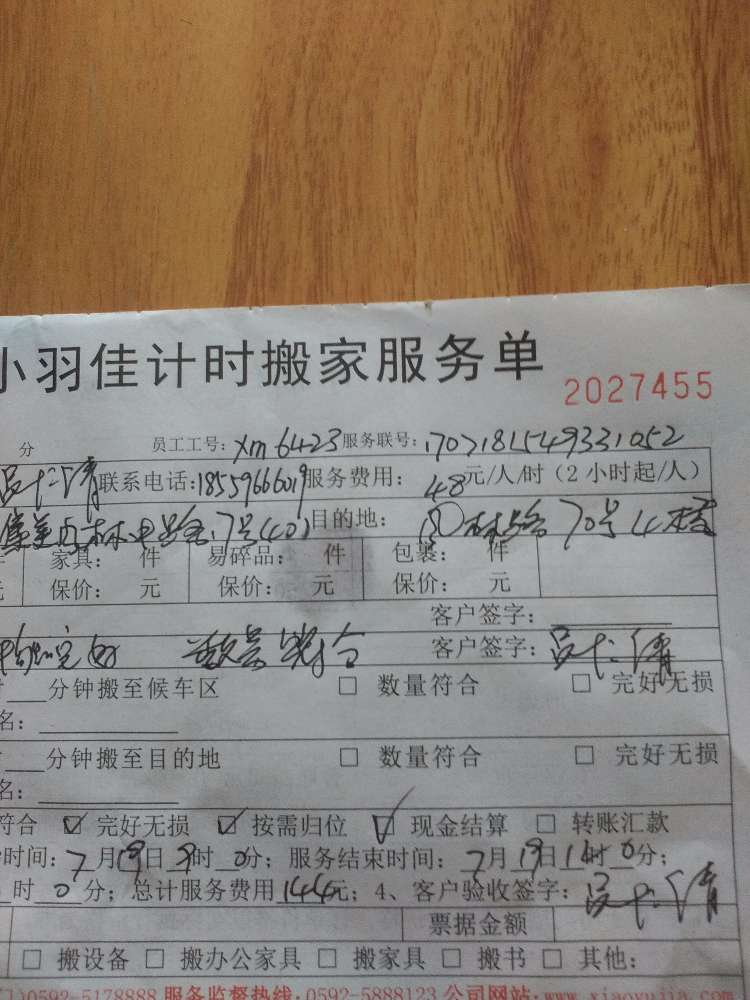 小羽佳计时搬家服务单 2027455
分 员工工号: xm 6423 服务联号:
联系电话: 18559666019 服务费用: 48元/人/时（2小时起/人）
7号 目的地: 林 70号
家具: 件 易碎品: 件 包裹: 件
元 保价: 元 保价: 元 保价: 元
客户签字:
完好 数量符合 客户签字:
分钟搬至候车区 □ 数量符合 □ 完好无损
名:
分钟搬至目的地 □ 数量符合 □ 完好无损
名:
符合 ☑ 完好无损 ☑ 按需归位 ☑ 现金结算 □ 转账汇款
时间: 7月19日 时0分; 服务结束时间: 7月19日 时0分;
时0分; 总计服务费用144元; 4、客户验收签字:
票据金额
□ 搬设备 □ 搬办公家具 □ 搬家具 □ 搬书 □ 其他:
)0592-5178888 服务监督热线: 0592-5888123 公司网站: www.xiaoyujia.com